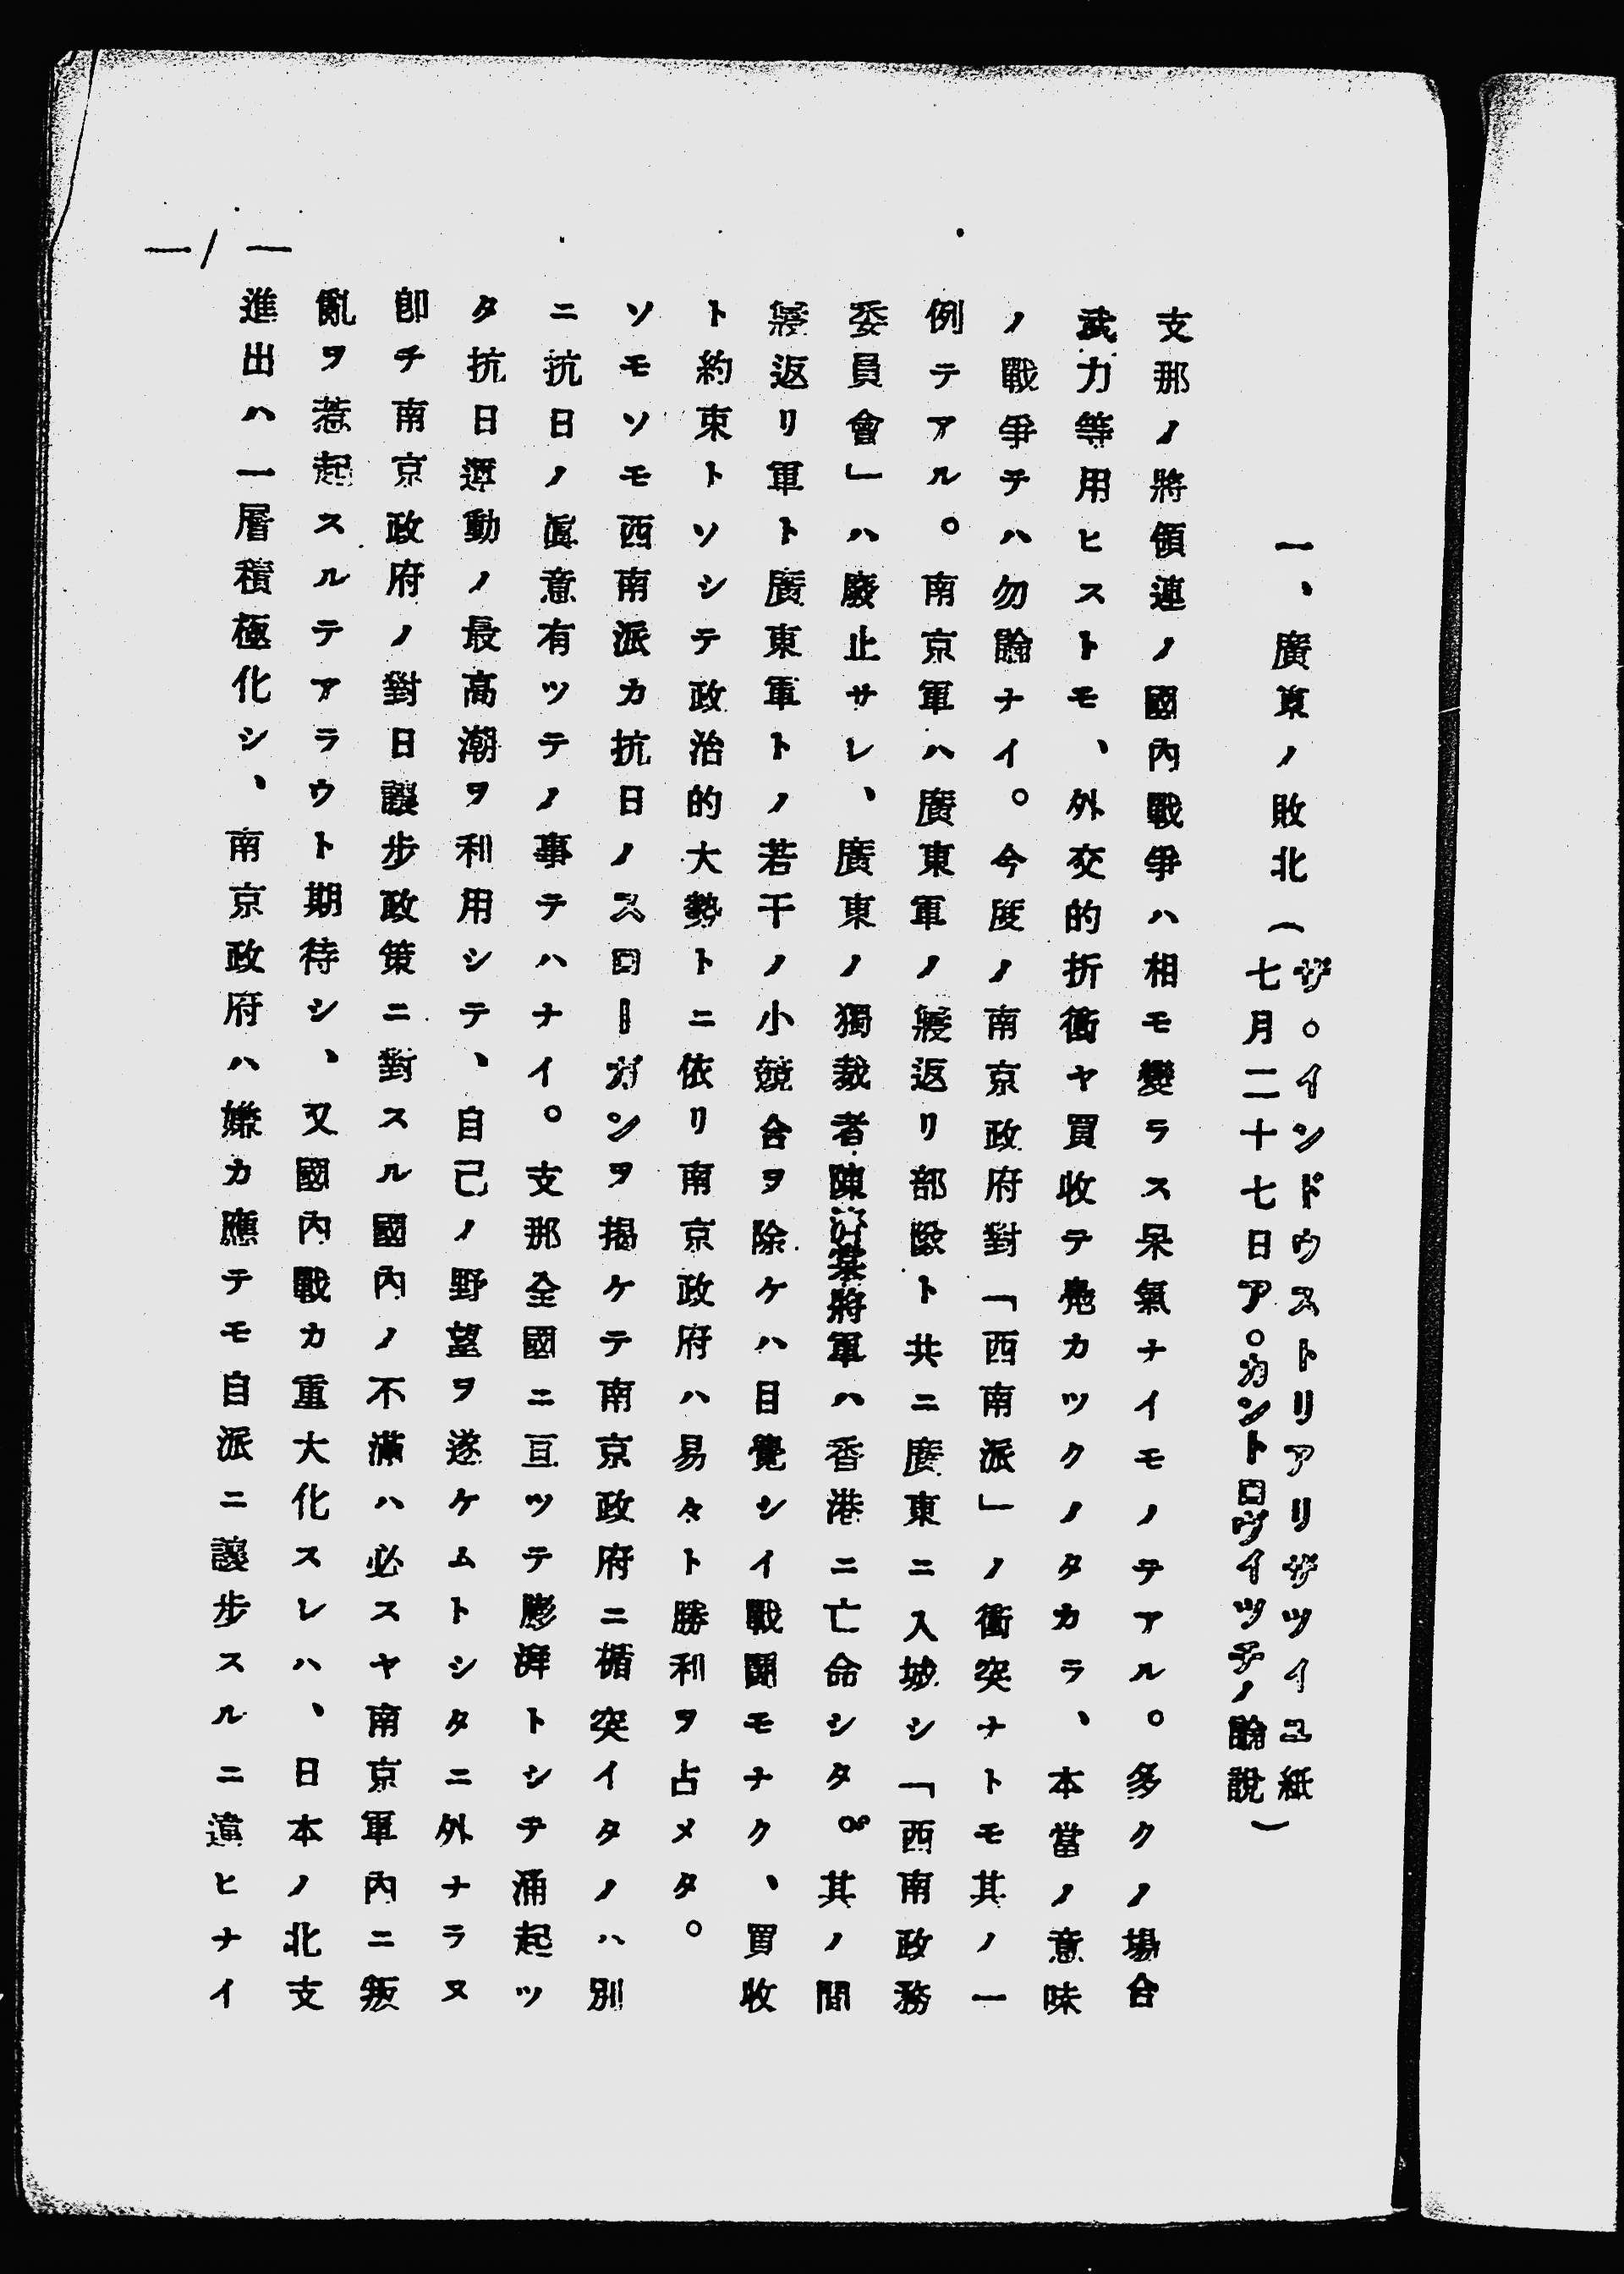 一、廣東ノ敗北（ザ。インドウストリアリザツイユ紙
七月二十七日ア。カントロヴイツチノ論說）
支那ノ將領連ノ國內戰爭ハ相モ變ラス呆氣ナイモノテアル。多クノ場合
武力等用ヒストモ、外交的折衝ヤ買收テ鳧カツクノタカラ、本當ノ意味
ノ戰爭テハ勿論ナイ。今度ノ南京政府對「西南派」ノ衝突ナトモ其ノ一
例テアル。南京軍ハ廣東軍ノ寢返リ部隊ト共ニ廣東ニ入城シ「西南政務
委員會」ハ廢止サレ、廣東ノ獨裁者陳濟棠將軍ハ香港ニ亡命シタ。其ノ間
寢返リ軍ト廣東軍トノ若干ノ小競合ヲ除ケハ目覺シイ戰鬪モナク、買收
ト約束トソシテ政治的大勢トニ依リ南京政府ハ易々ト勝利ヲ占メタ。
ソモソモ西南派カ抗日ノスローガンヲ揭ケテ南京政府ニ楯突イタノハ別
ニ抗日ノ眞意有ツテノ事テハナイ。支那全國ニ亘ツテ膨湃トシテ涌起ツ
タ抗日運動ノ最高潮ヲ利用シテ、自己ノ野望ヲ遂ケムトシタニ外ナラヌ
卽チ南京政府ノ對日讓步政策ニ對スル國內ノ不滿ハ必スヤ南京軍內ニ叛
亂ヲ惹起スルテアラウト期待シ、又國內戰カ重大化スレハ、日本ノ北支
進出ハ一層積極化シ、南京政府ハ嫌カ應テモ自派ニ讓步スルニ違ヒナイ
一／一